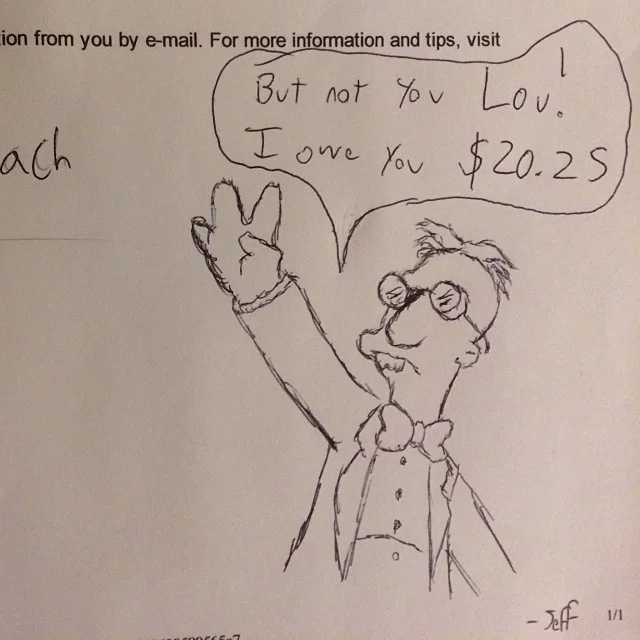 tion from you by e-mail. For more information and tips, visit
But not you Lou!
I owe you $20.25
ach
- Jeff
1/1